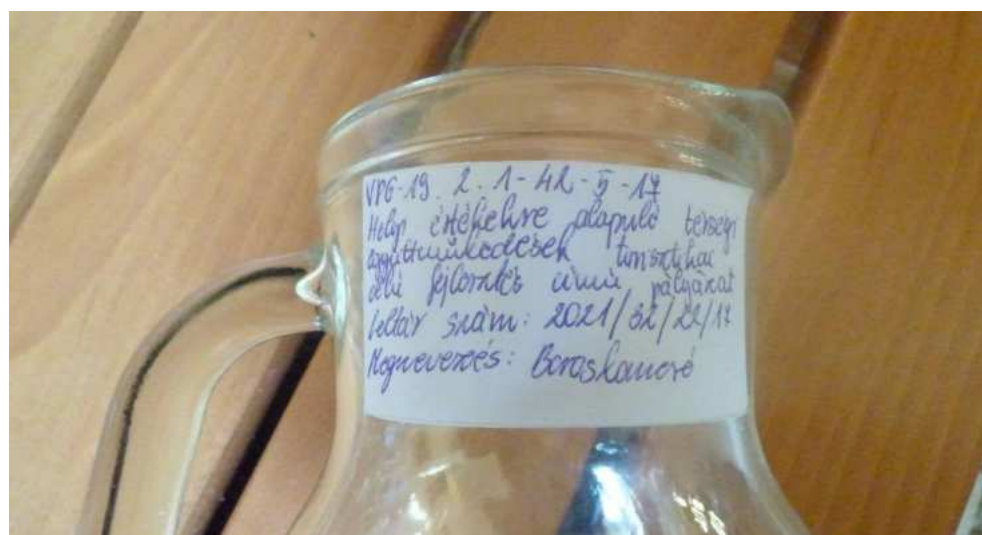 VP6-19.2.1-42-5-17
Helyi értékekre alapuló térségi
együttműködések turisztikai
célú fejlesztés című pályázat
Leltár szám: 2021/32/22/17
Megnevezés: Boroskancsó